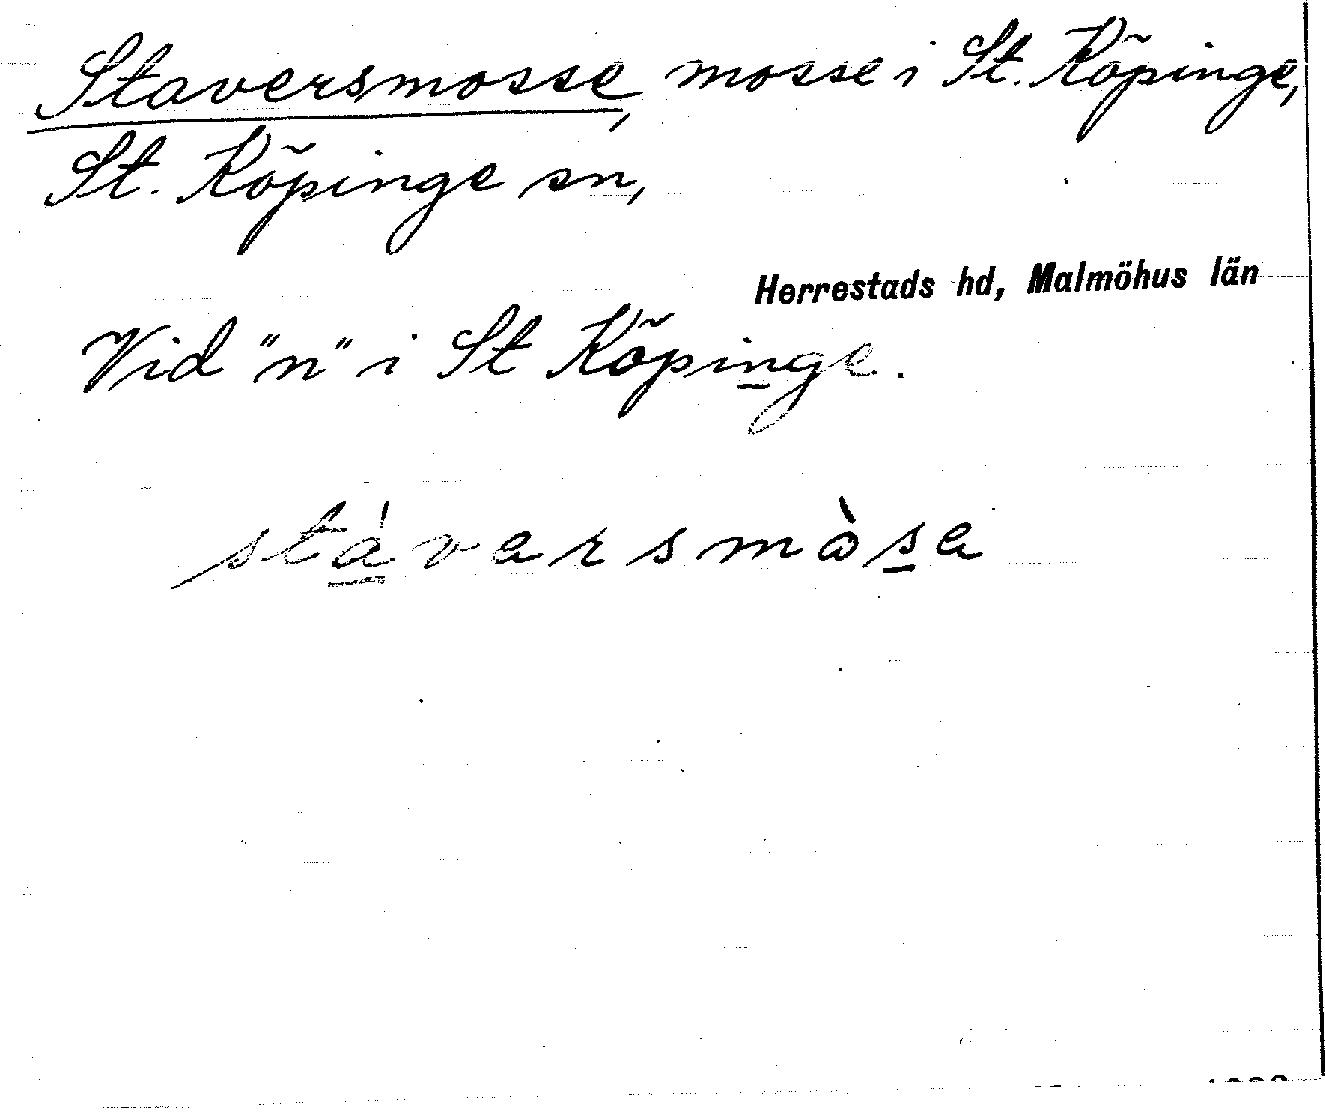 Staversmosse, mosse i St. Köpinge,
St. Köpinge sn,
Herrestads hd, Malmöhus län
Vid "n" i St Köpinge.
stávarsmòsa